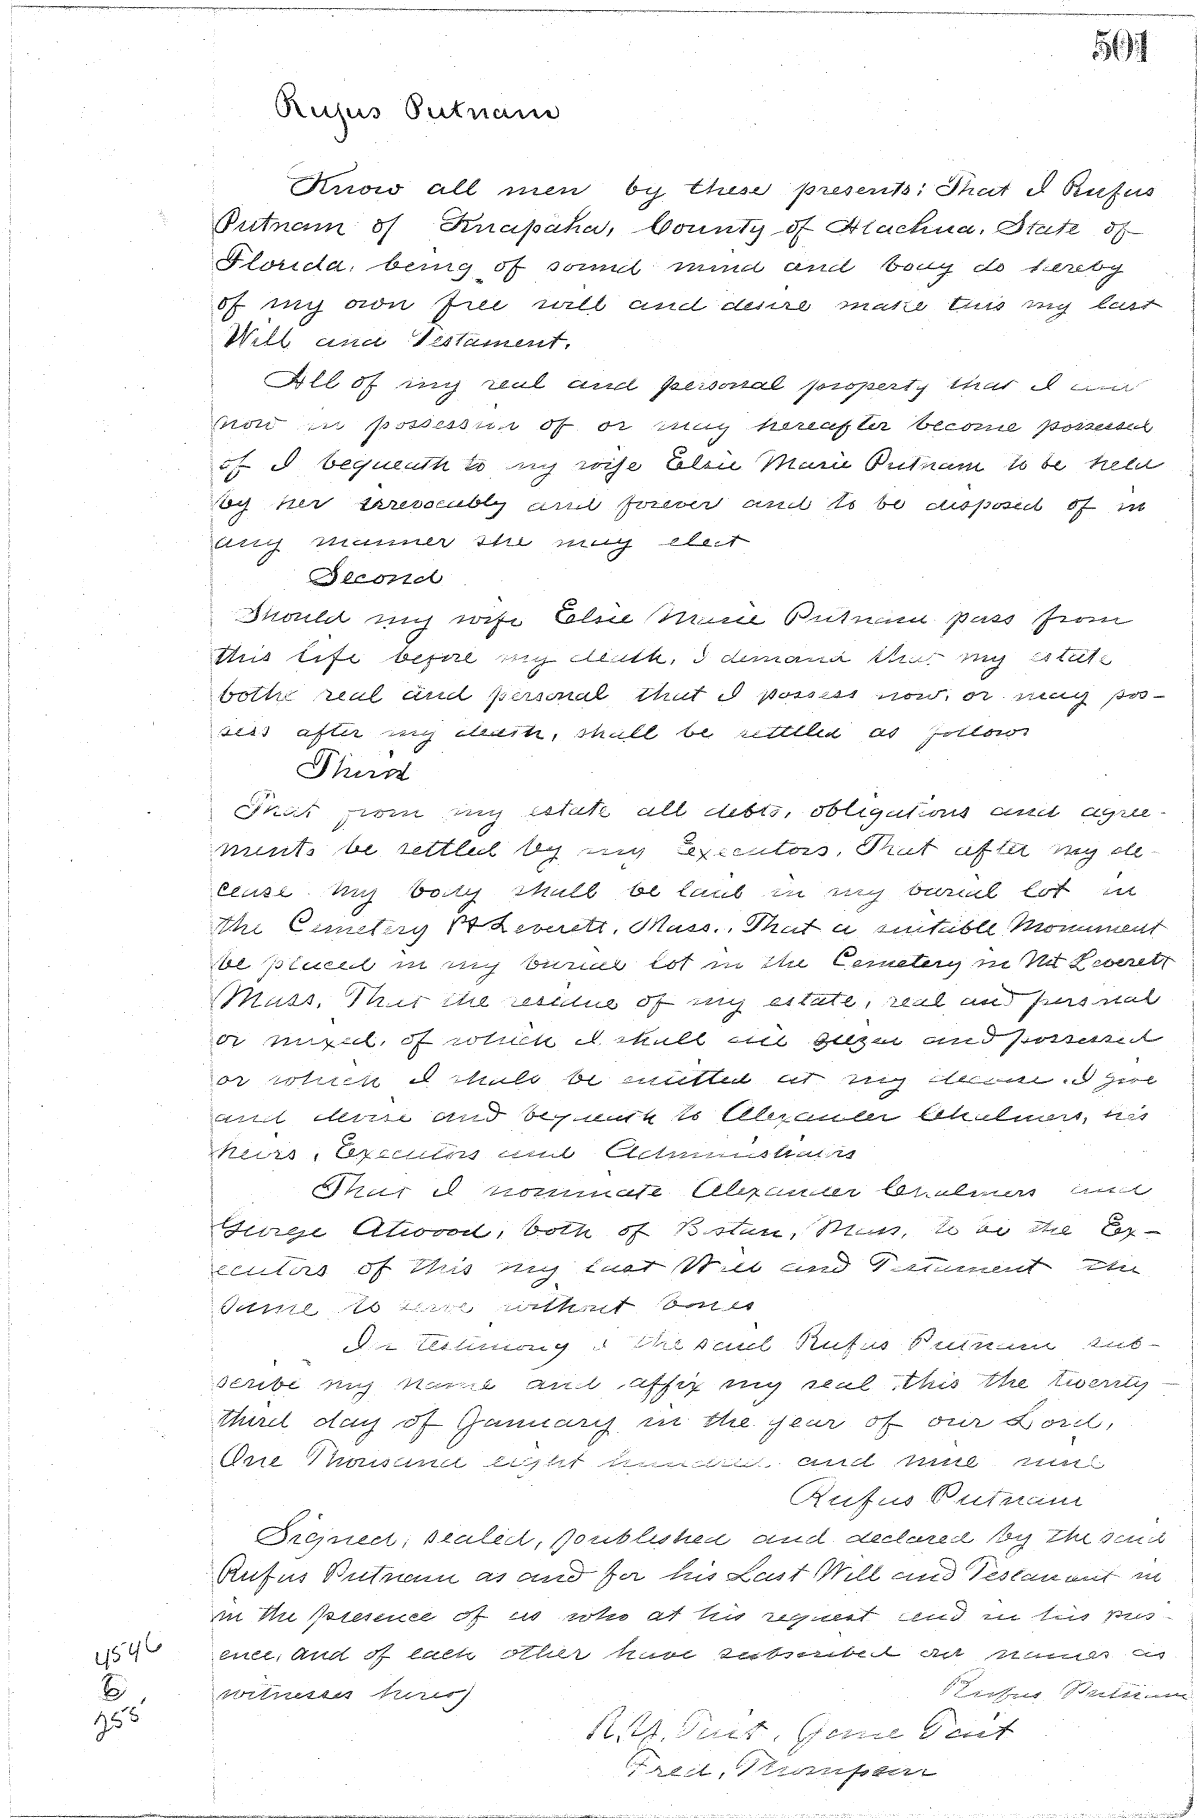 501
Rufus Putnam
Know all men by these presents: That I Rufus
Putnam of Knapaha, County of Alachua, State of
Florida, being of sound mind and body do hereby
of my own free will and desire make this my last
Will and Testament.
All of my real and personal property that I am
now in possession of or may hereafter become possessed
of I bequeath to my wife Elsie Marie Putnam to be held
by her irrevocably and forever and to be disposed of in
any manner she may elect
Second
Should my wife Elsie Marie Putnam pass from
this life before my death, I demand that my estate
bothe real and personal that I possess now, or may pos-
sess after my death, shall be settled as follows
Third
That from my estate all debts, obligations and agree-
ments be settled by my Executors. That after my de-
cease my body shall be laid in my burial lot in
the Cemetery Leverett, Mass.. That a suitable Monument
be placed in my burial lot in the Cemetery in Leverett
Mass. That the residue of my estate, real and personal
or mixed, of which I shall die seized and possessed
or which I shall be entitled at my decease. I give
and devise and bequeath to Alexander Chalmers, his
heirs, Executors and Administrators
That I nominate Alexander Chalmers and
George Atwood, both of Boston, Mass, to be the Ex-
ecutors of this my last Will and Testament the
same to serve without bonds
In testimony I the said Rufus Putnam sub-
scribe my name and affix my seal this the twenty-
third day of January in the year of our Lord,
One Thousand eight hundred and nine nine
Rufus Putnam
Signed, sealed, published and declared by the said
Rufus Putnam as and for his Last Will and Testament in
in the presence of us who at his request and in his pres-
ence, and of each other have subscribed our names as
witnesses hereof
Rufus Putnam
Tait, Tait
Fred, Thompson
4546
E
255